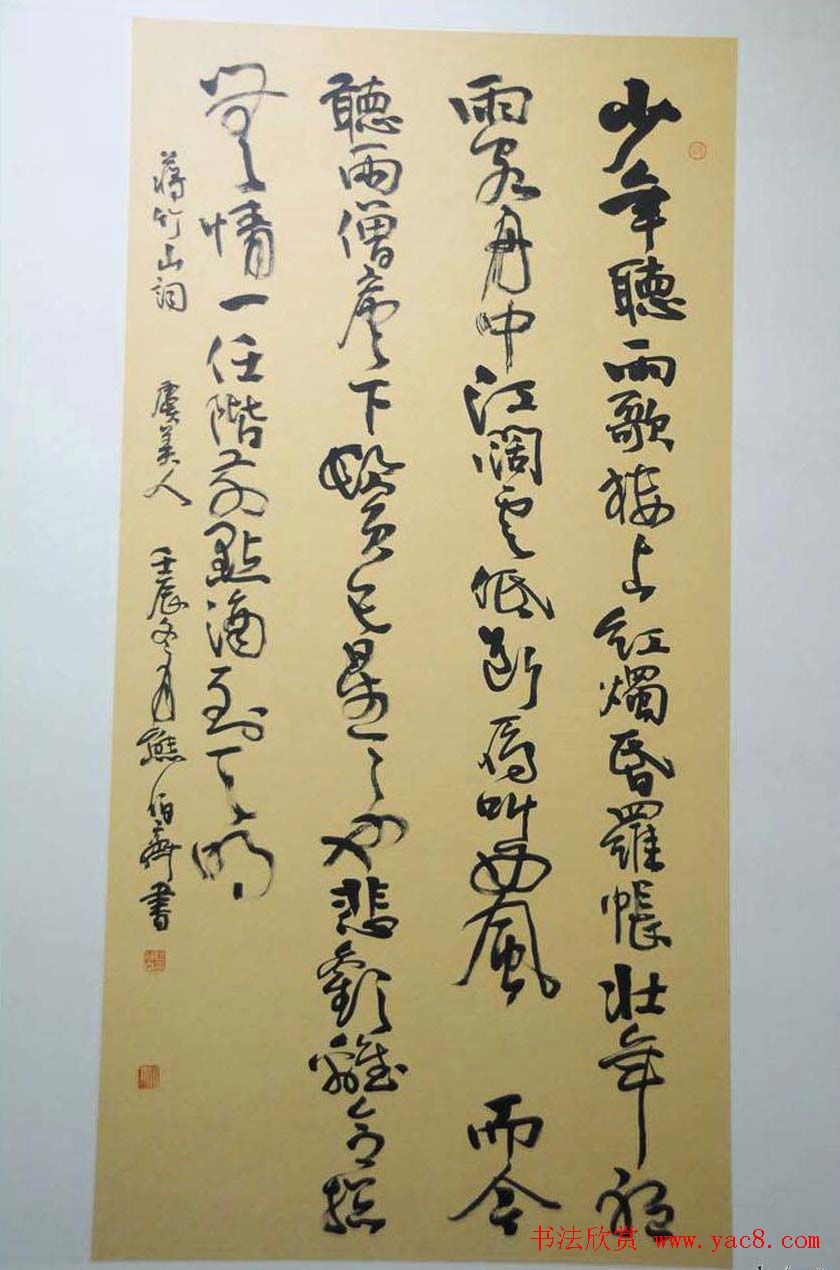 少年聽雨歌樓上紅燭昏羅帳壯年聽
雨客舟中江闊雲低斷雁叫西風 而今
聽雨僧廬下鬢已星星也悲歡離合總
無情一任階前點滴到天明
蔣竹山詞 虞美人 壬辰冬月熊伯齊書
书法欣赏 www.yac8.com